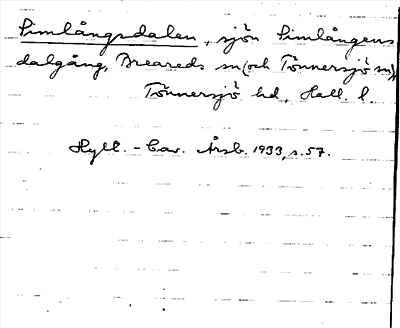 Simlångsdalen, sjön Simlångens
dalgång, Breareds sn (och Tönnersjö sn),
Tönnersjö hd, Hall. l.
Hyll.-Cav. Årsb. 1933, s. 57.